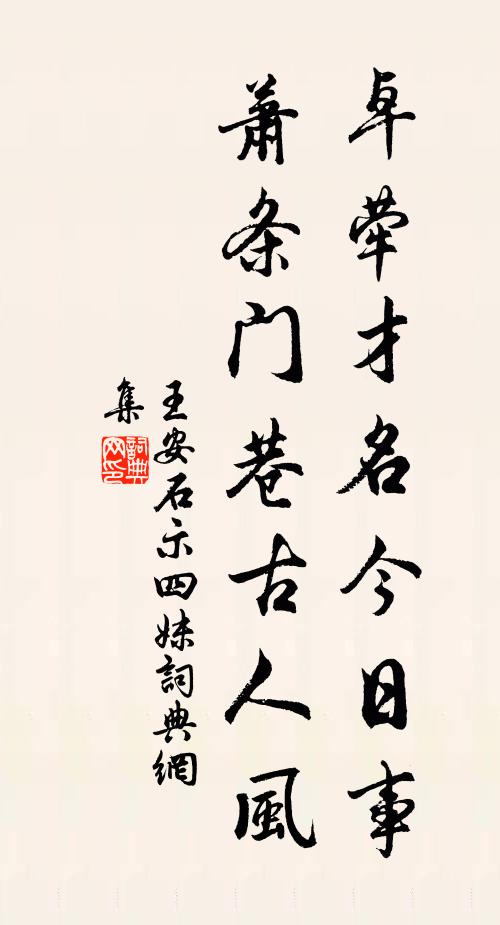 卓犖才名今日事
蕭条門巷古人風
王安石示四妹詞典網
集
詞典网印